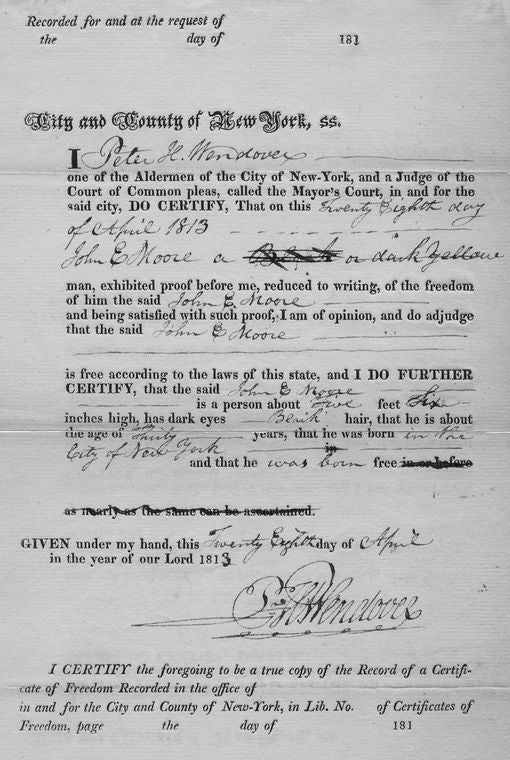 Recorded for and at the request of
the day of 181
City and County of New York, ss.
I Peter H. Wendover
one of the Aldermen of the City of New-York, and a Judge of the
Court of Common pleas, called the Mayor's Court, in and for the
said city, DO CERTIFY, That on this Twenty Eighth day
of April 1813
John E Moore a Black or dark Yellow
man, exhibited proof before me, reduced to writing, of the freedom
of him the said John E. Moore
and being satisfied with such proof, I am of opinion, and do adjudge
that the said John E Moore
is free according to the laws of this state, and I DO FURTHER
CERTIFY, that the said John E Moore
is a person about five feet Six
inches high, has dark eyes Black hair, that he is about
the age of Thirty years, that he was born in the
City of New York in
and that he was born free in or before
as nearly as the same can be ascertained.
GIVEN under my hand, this Twenty Eighth day of April
in the year of our Lord 1813
P. H. Wendover
I CERTIFY the foregoing to be a true copy of the Record of a Certifi-
cate of Freedom Recorded in the office of
in and for the City and County of New-York, in Lib. No. of Certificates of
Freedom, page the day of 181